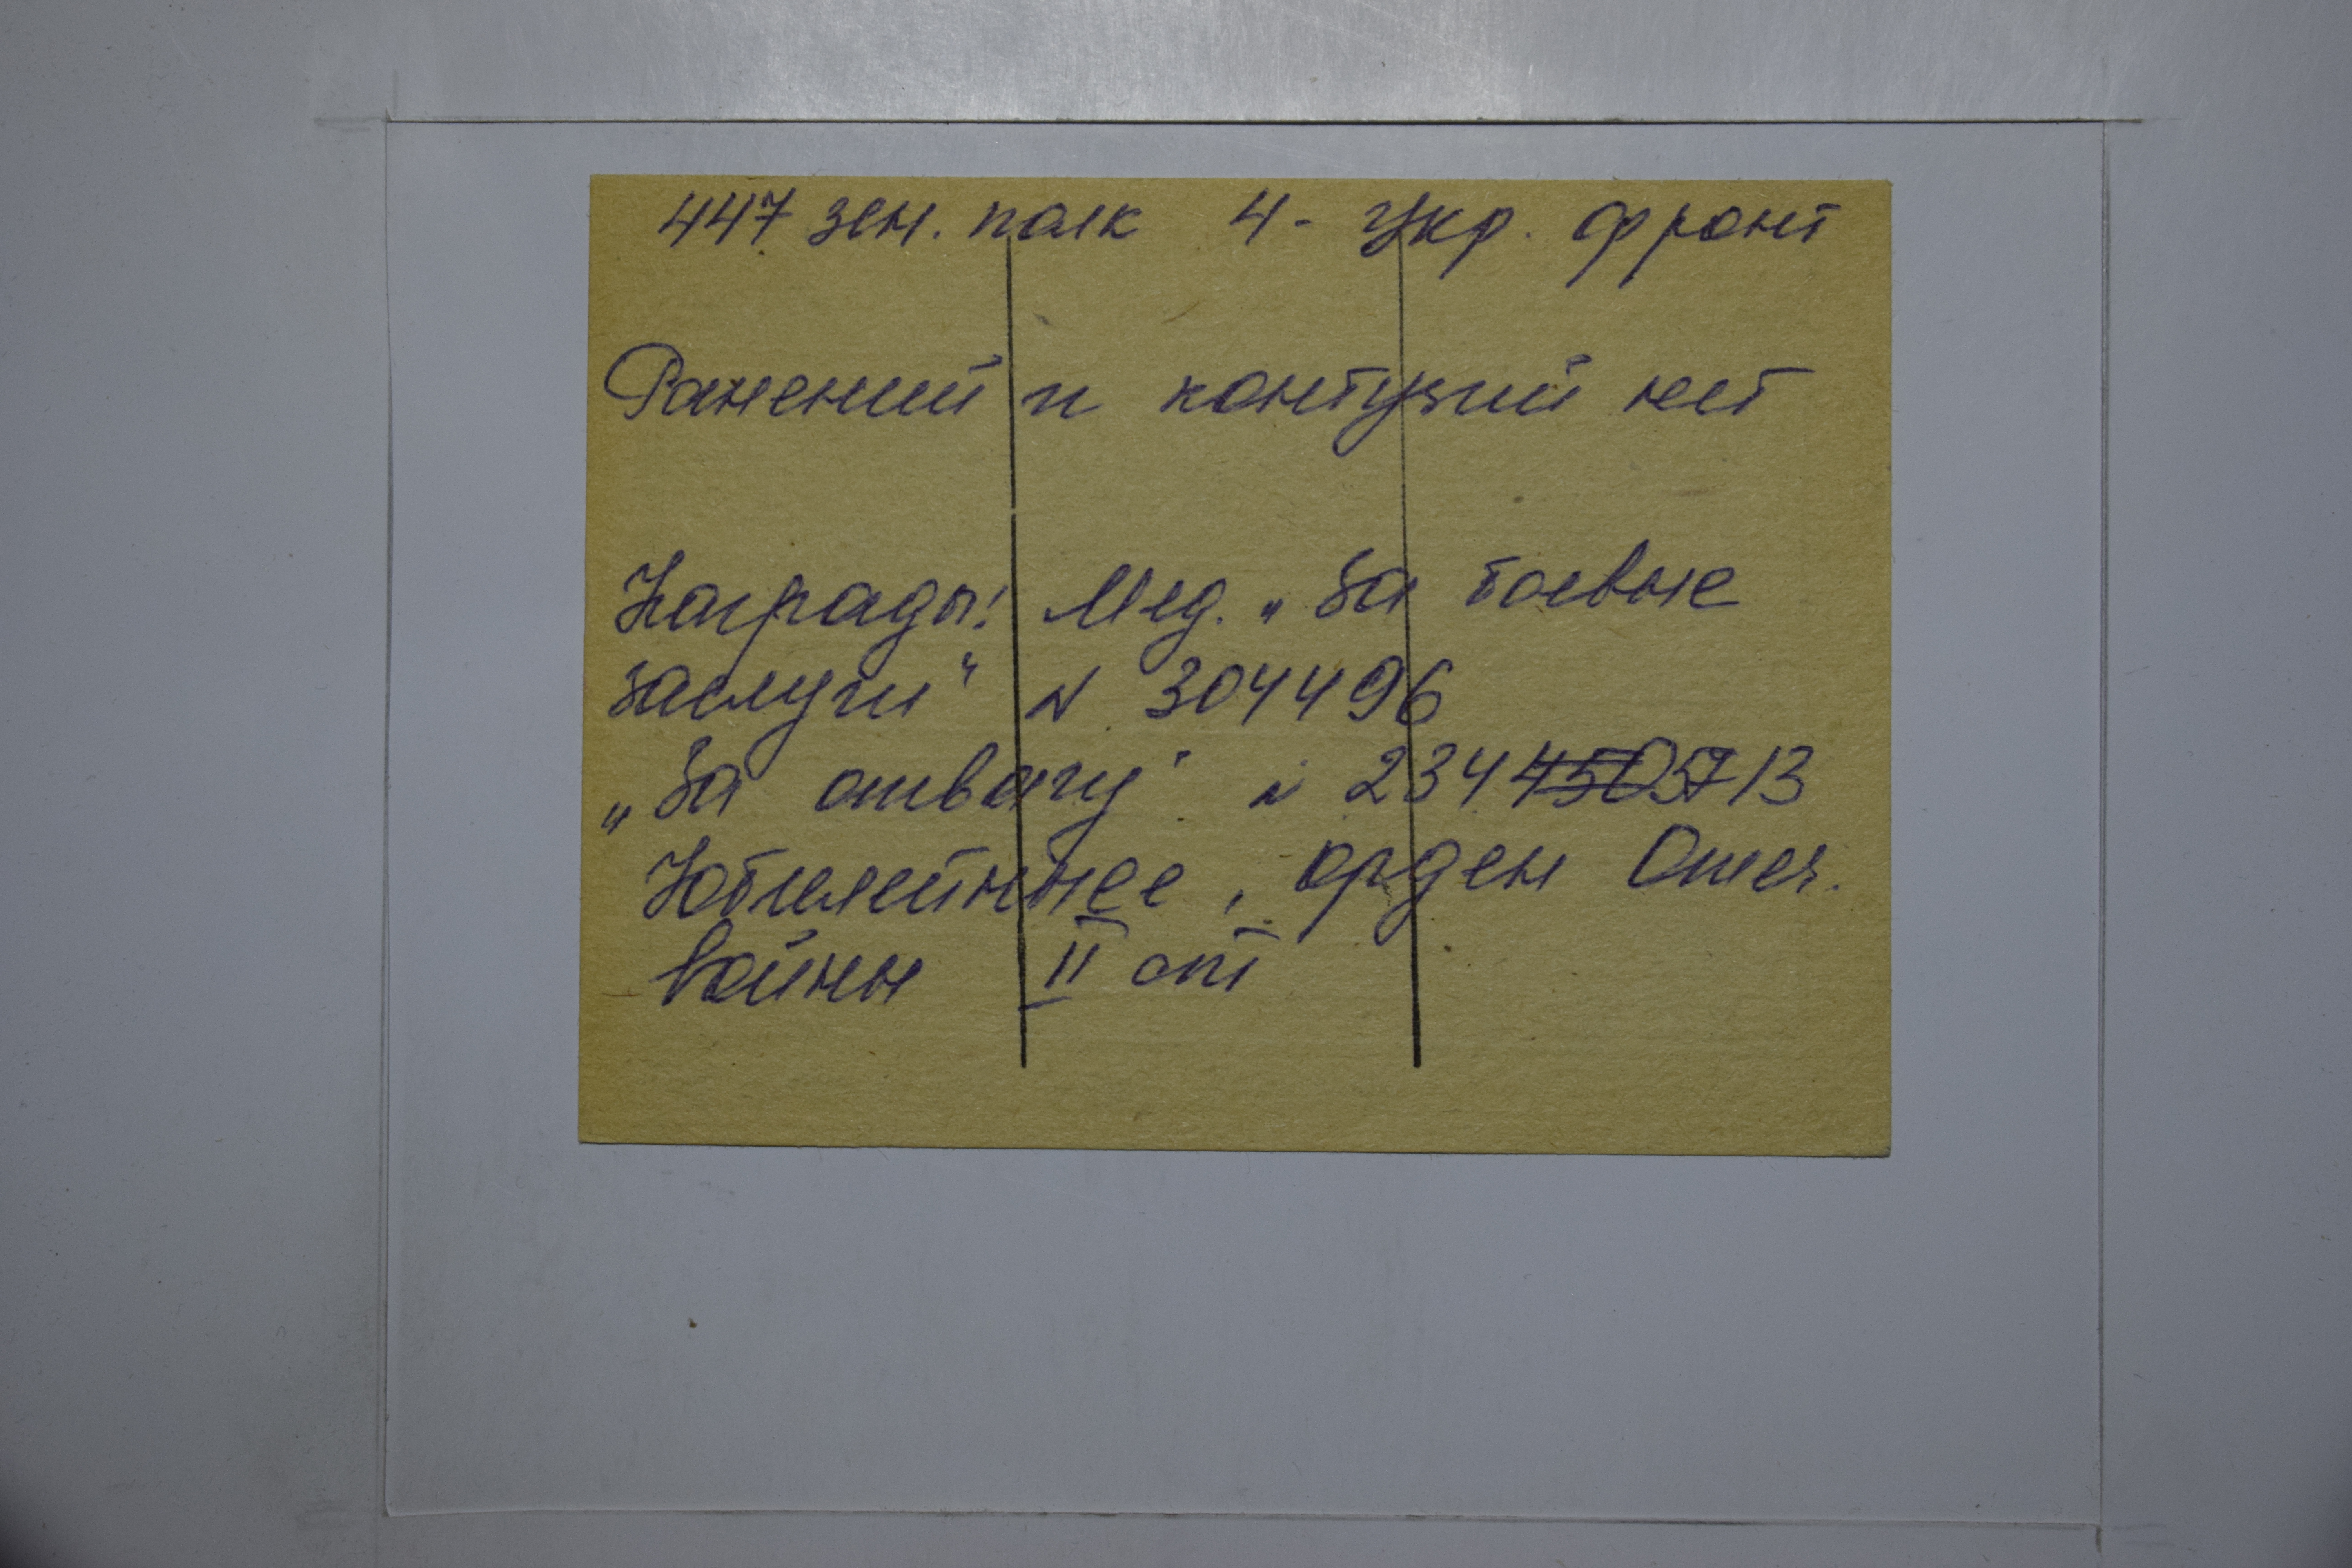 447 зен. полк 4- Укр. фронт
Ранений и контузий нет
Награды: Мед. „За боевые
заслуги" N 304496
„За отвагу" N
Юбилейные, орден Отеч.
войны II ст